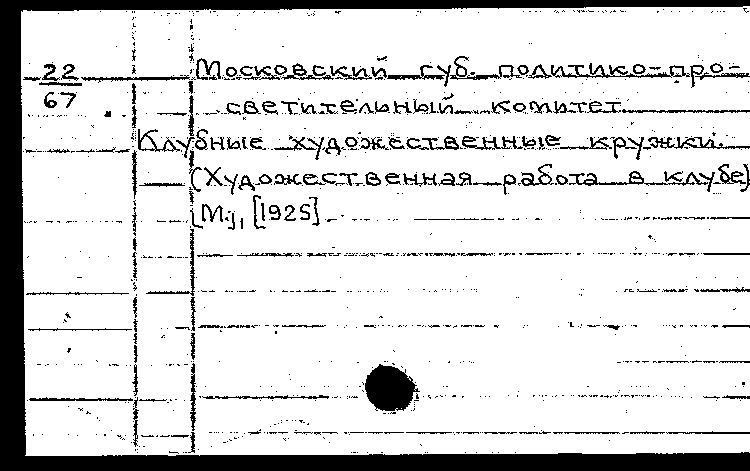 22
67
Московский губ. политико-про-
светительный комитет.
Клубные художественные кружки.
(Художественная работа в клубе)
[М.], [1925].